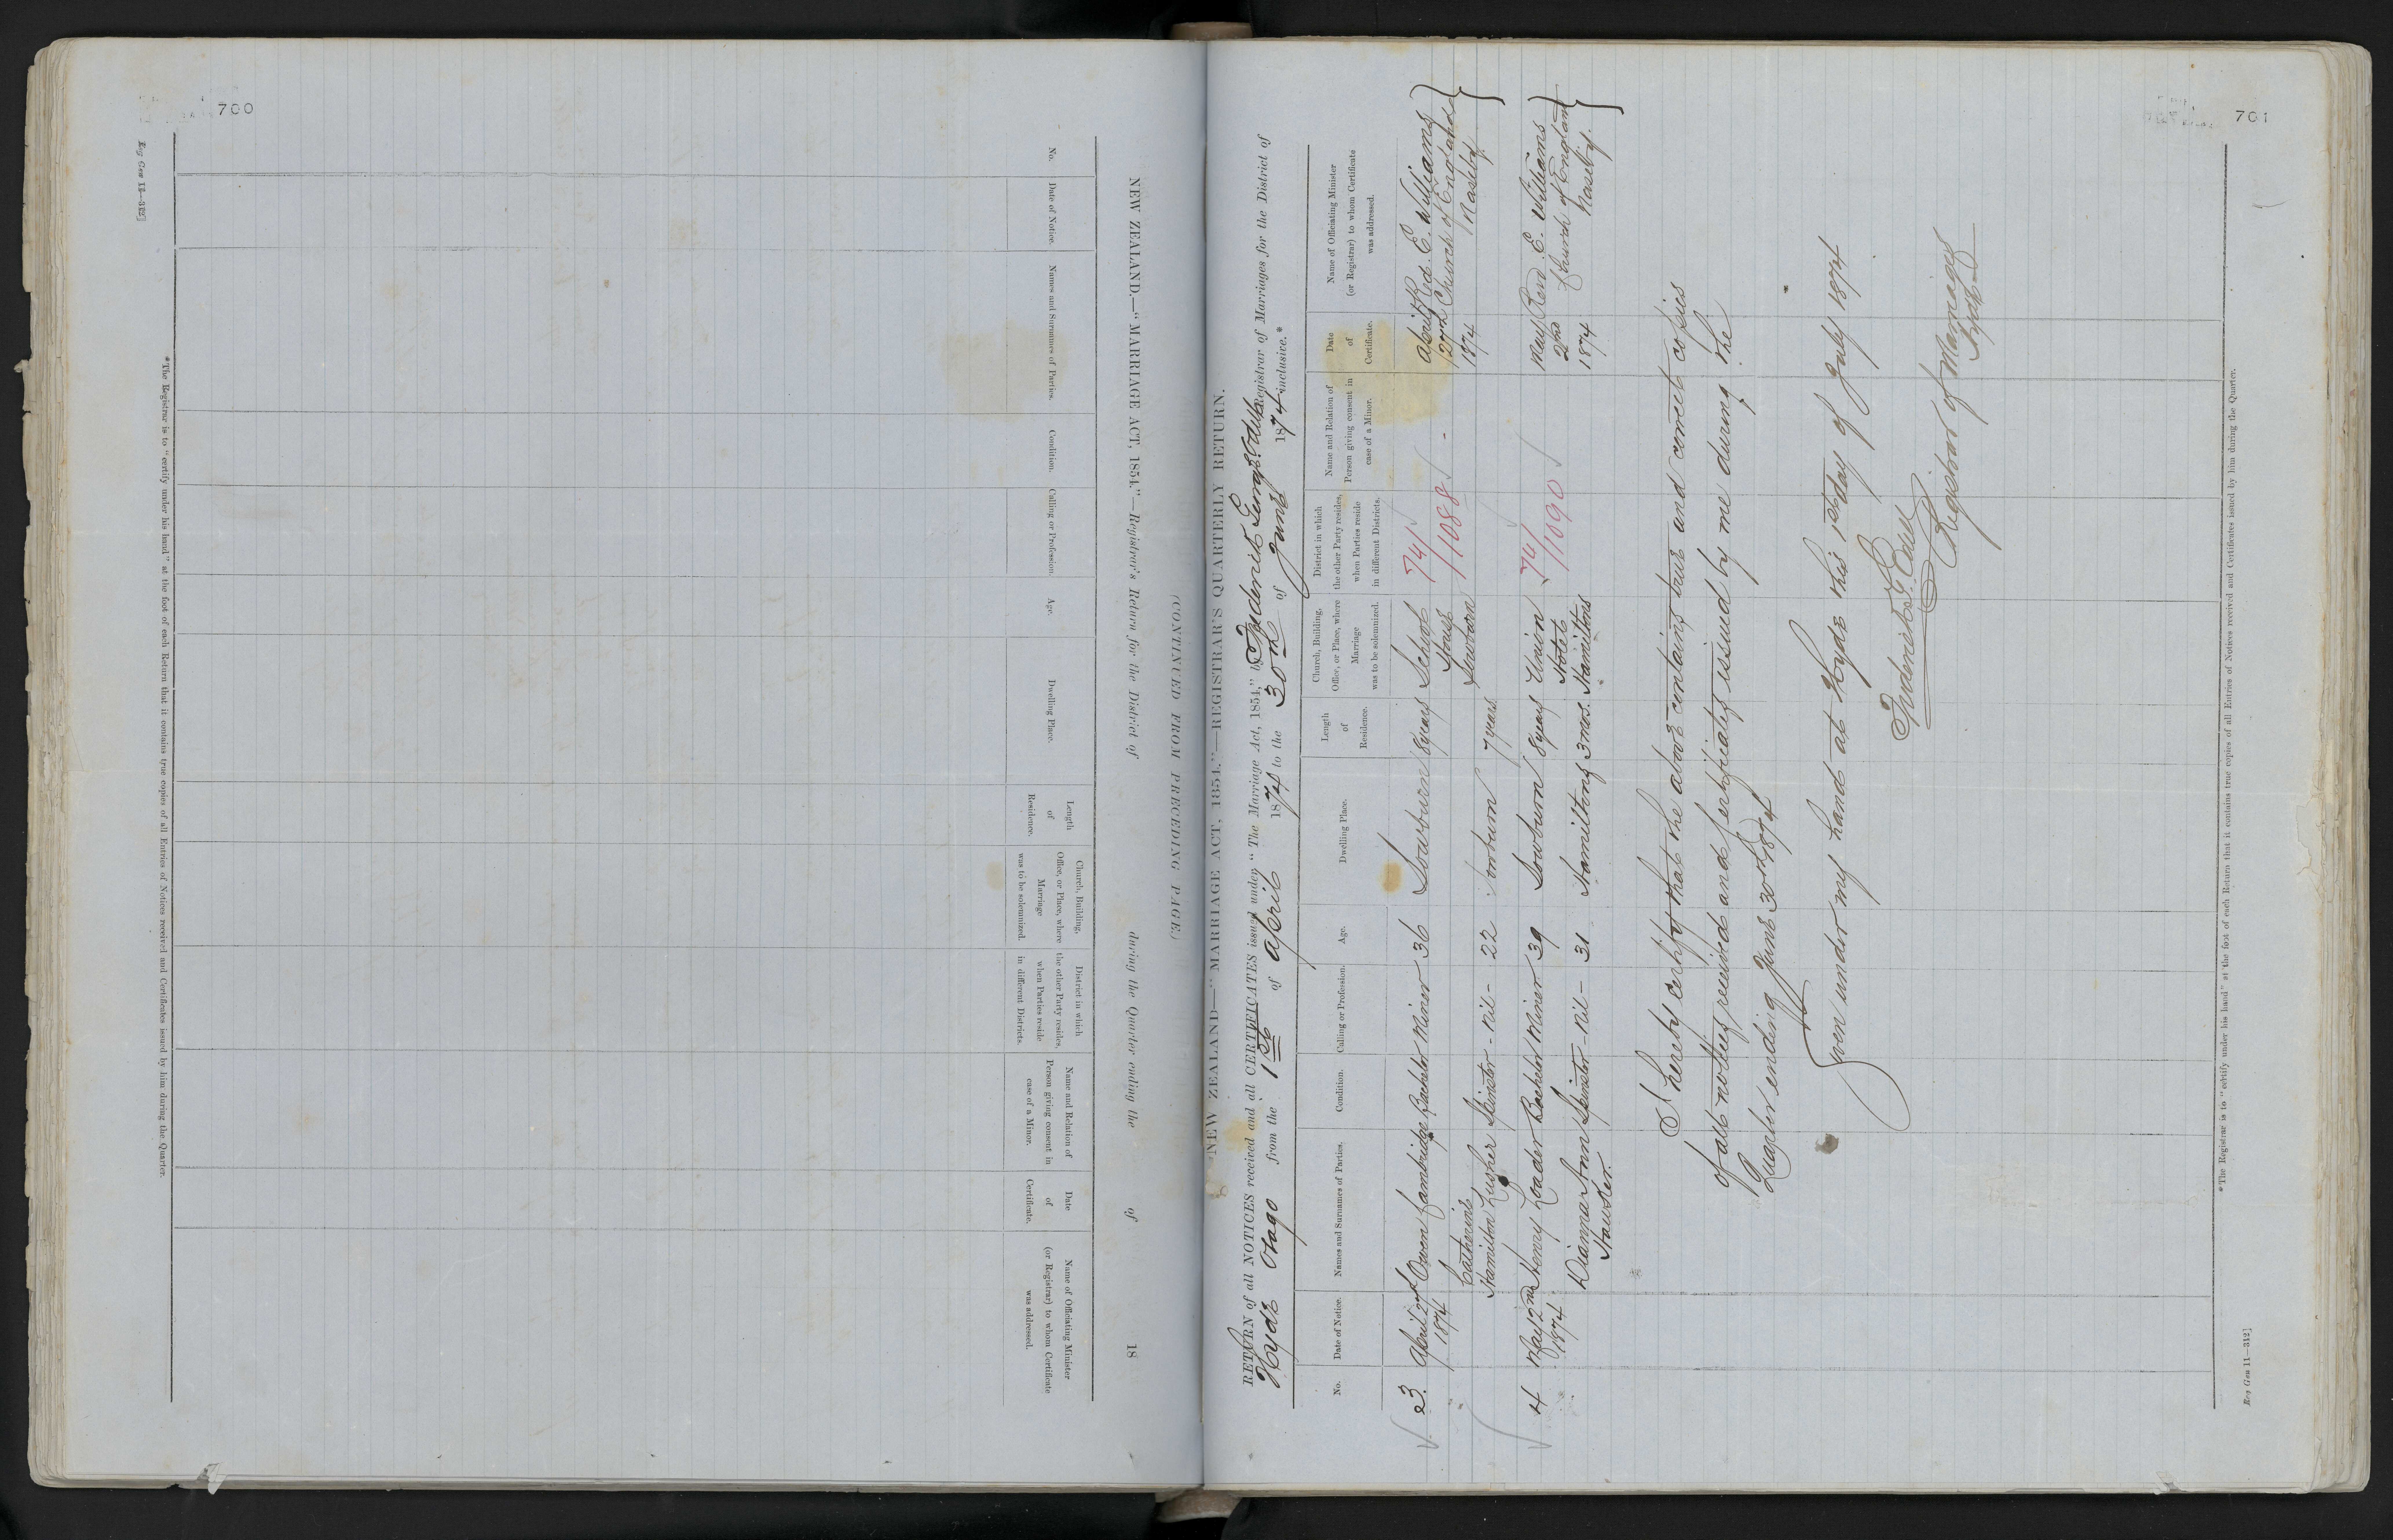 700
Reg Gen 11—312]
NEW ZEALAND.—"MARRIAGE ACT, 1854."—Registrar's Return for the District of during the Quarter ending the of 18
(CONTINUED FROM PRECEDING PAGE.)
No.
Date of Notice.
Names and Surnames of Parties.
Condition.
Calling or Profession.
Age.
Dwelling Place.
Length of Residence.
Church, Building, Office, or Place, where Marriage was to be solemnized.
District in which the other Party resides, when Parties reside in different Districts.
Name and Relation of Person giving consent in case of a Minor.
Date of Certificate.
Name of Officiating Minister (or Registrar) to whom Certificate was addressed.
*The Registrar is to "certify under his hand" at the foot of each Return that it contains true copies of all Entries of Notices received and Certificates issued by him during the Quarter.
701
NEW ZEALAND—"MARRIAGE ACT, 1854."—REGISTRAR'S QUARTERLY RETURN.
RETURN of all NOTICES received and all CERTIFICATES issued under "The Marriage Act, 1854," by Frederick George Registrar of Marriages for the District of
Hyde Otago from the 1st of April 1874 to the 30th of June 1874 inclusive.*
No.
Date of Notice.
Names and Surnames of Parties.
Condition.
Calling or Profession.
Age.
Dwelling Place.
Length of Residence.
Church, Building, Office, or Place, where Marriage was to be solemnized.
District in which the other Party resides, when Parties reside in different Districts.
Name and Relation of Person giving consent in case of a Minor.
Date of Certificate.
Name of Officiating Minister (or Registrar) to whom Certificate was addressed.
3. April 27 Owen Cambridge Bachelor Miner 36 Sowburn 8 years School 74/ April 27th Revd. E. Williams
1874 House /1088 Church of England
Catherine Sowburn 1874 Naseby.
Hamilton Lusher Spinster - nil - 22 Sowburn 7 years
4 May 2nd Henry Loader Bachelor Miner 39 Sowburn 8 years Union 74/ May Revd E. Williams
1874 Hotel /1090 2nd Church of England
Dianna Ann Spinster - nil - 31 Hamiltons 3 mos. Hamiltons 1874 Naseby.
I hereby certify that the above contains true and correct copies
of all notices received and Certificates issued by me during the
Quarter ending June 30th 1874
Given under my hand at Hyde this 1st day of July 1874
Frederick G.
Registrar of Marriages
Hyde
*The Registrar is to "certify under his hand" at the foot of each Return that it contains true copies of all Entries of Notices received and Certificates issued by him during the Quarter.
Reg Gen 11—312]